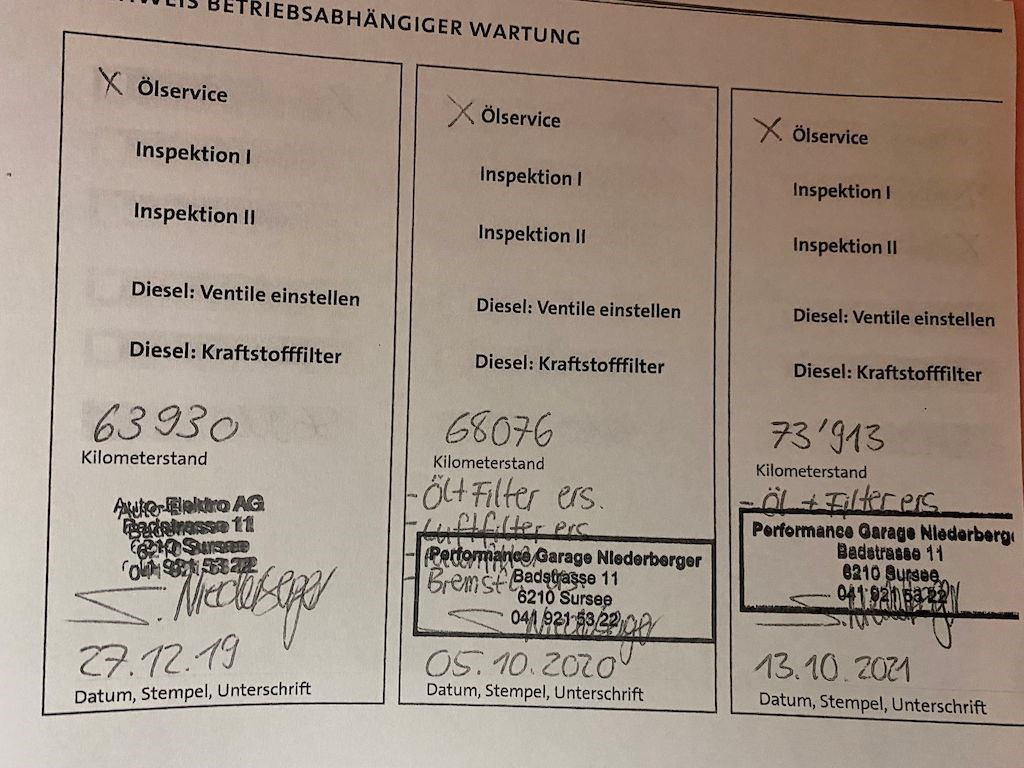 WEIS BETRIEBSABHÄNGIGER WARTUNG
X Ölservice
Inspektion I
Inspektion II
Diesel: Ventile einstellen
Diesel: Kraftstofffilter
63930
Kilometerstand
Auto-Elektro AG
Badstrasse 11
6210 Sursee
041 921 53 22
27.12.19
Datum, Stempel, Unterschrift
X Ölservice
Inspektion I
Inspektion II
Diesel: Ventile einstellen
Diesel: Kraftstofffilter
68076
Kilometerstand
- Öl + Filter ers.
- Luftfilter ers
Performance Garage Niederberger
Badstrasse 11
6210 Sursee
041 921 53 22
05.10.2020
Datum, Stempel, Unterschrift
X Ölservice
Inspektion I
Inspektion II
Diesel: Ventile einstellen
Diesel: Kraftstofffilter
73'913
Kilometerstand
- Öl + Filter ers.
Performance Garage Niederberge
Badstrasse 11
6210 Sursee
041 921 53 22
13.10.2021
Datum, Stempel, Unterschrift